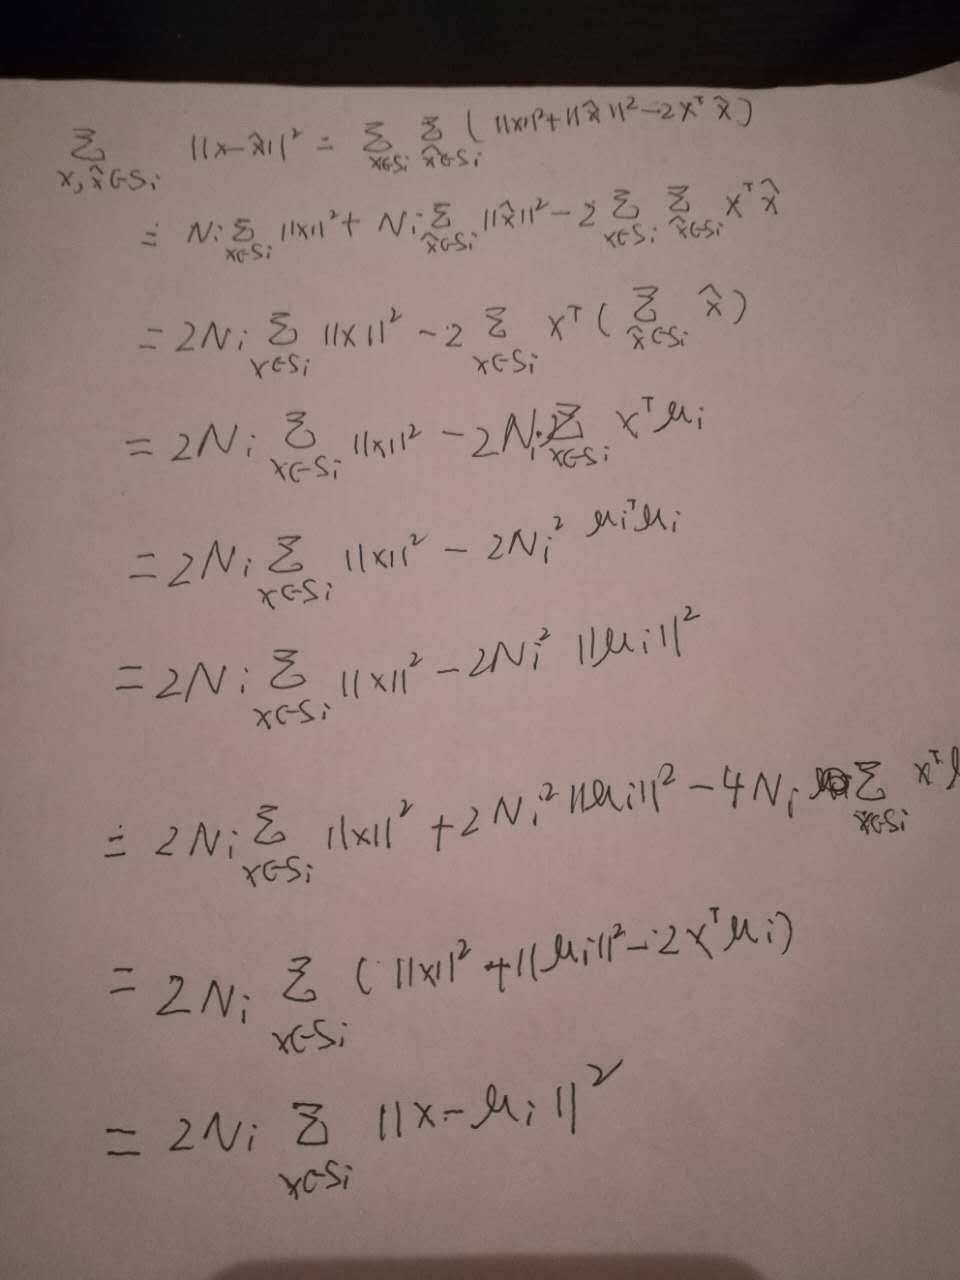 ∑_{x, x̂∈S_i} ||x-x̂||² = ∑_{x∈S_i} ∑_{x̂∈S_i} (||x||²+||x̂||²-2x^T x̂)
= N_i ∑_{x∈S_i} ||x||² + N_i ∑_{x̂∈S_i} ||x̂||² - 2 ∑_{x∈S_i} ∑_{x̂∈S_i} x^T x̂
= 2N_i ∑_{x∈S_i} ||x||² - 2 ∑_{x∈S_i} x^T ( ∑_{x̂∈S_i} x̂ )
= 2N_i ∑_{x∈S_i} ||x||² - 2N_i ∑_{x∈S_i} x^T μ_i
= 2N_i ∑_{x∈S_i} ||x||² - 2N_i² μ_i^T μ_i
= 2N_i ∑_{x∈S_i} ||x||² - 2N_i² ||μ_i||²
= 2N_i ∑_{x∈S_i} ||x||² + 2N_i² ||μ_i||² - 4N_i ∑_{x∈S_i} x^T
= 2N_i ∑_{x∈S_i} ( ||x||² + ||μ_i||² - 2x^T μ_i )
= 2N_i ∑_{x∈S_i} ||x-μ_i||²